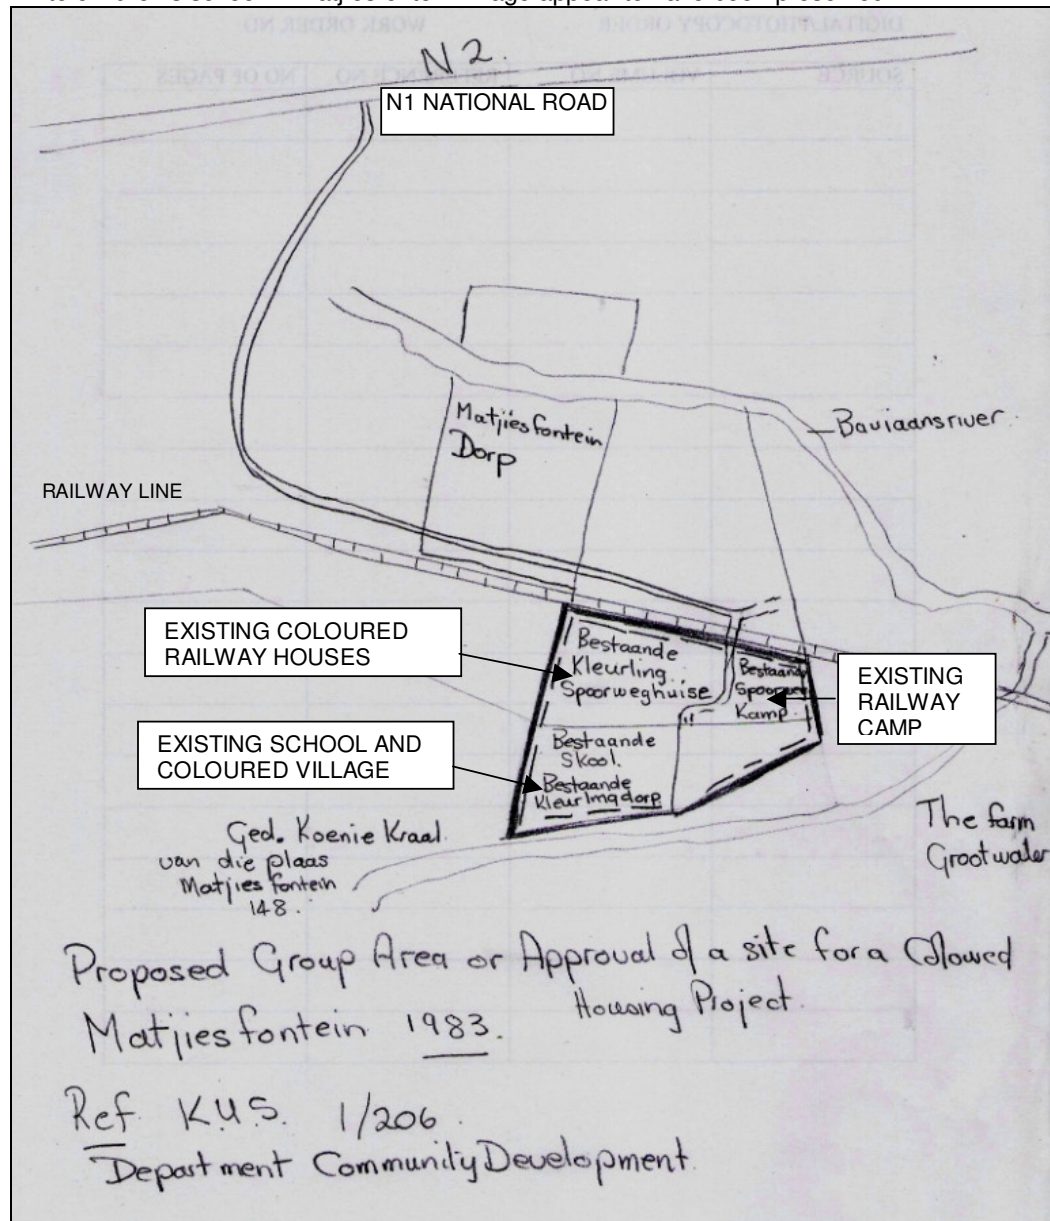 N2.
N1 NATIONAL ROAD
Matjiesfontein
Dorp
Baviaansriver
RAILWAY LINE
EXISTING COLOURED
RAILWAY HOUSES
Bestaande
Kleurling
Spoorweghuise
Bestaande
Kamp
EXISTING
RAILWAY
CAMP
EXISTING SCHOOL AND
COLOURED VILLAGE
Bestaande
Skool.
Bestaande
Kleurlingdorp
Ged. Koenie Kraal
van die plaas
Matjiesfontein
148.
The farm
Grootwater
Proposed Group Area or Approval of a site for a Coloured
Housing Project.
Matjiesfontein 1983.
Ref. K.U.S. 1/206
Department Community Development
DIGITAL/PHOTOCOPY ORDER
WORK ORDER NO
SOURCE
NO OF PAGES